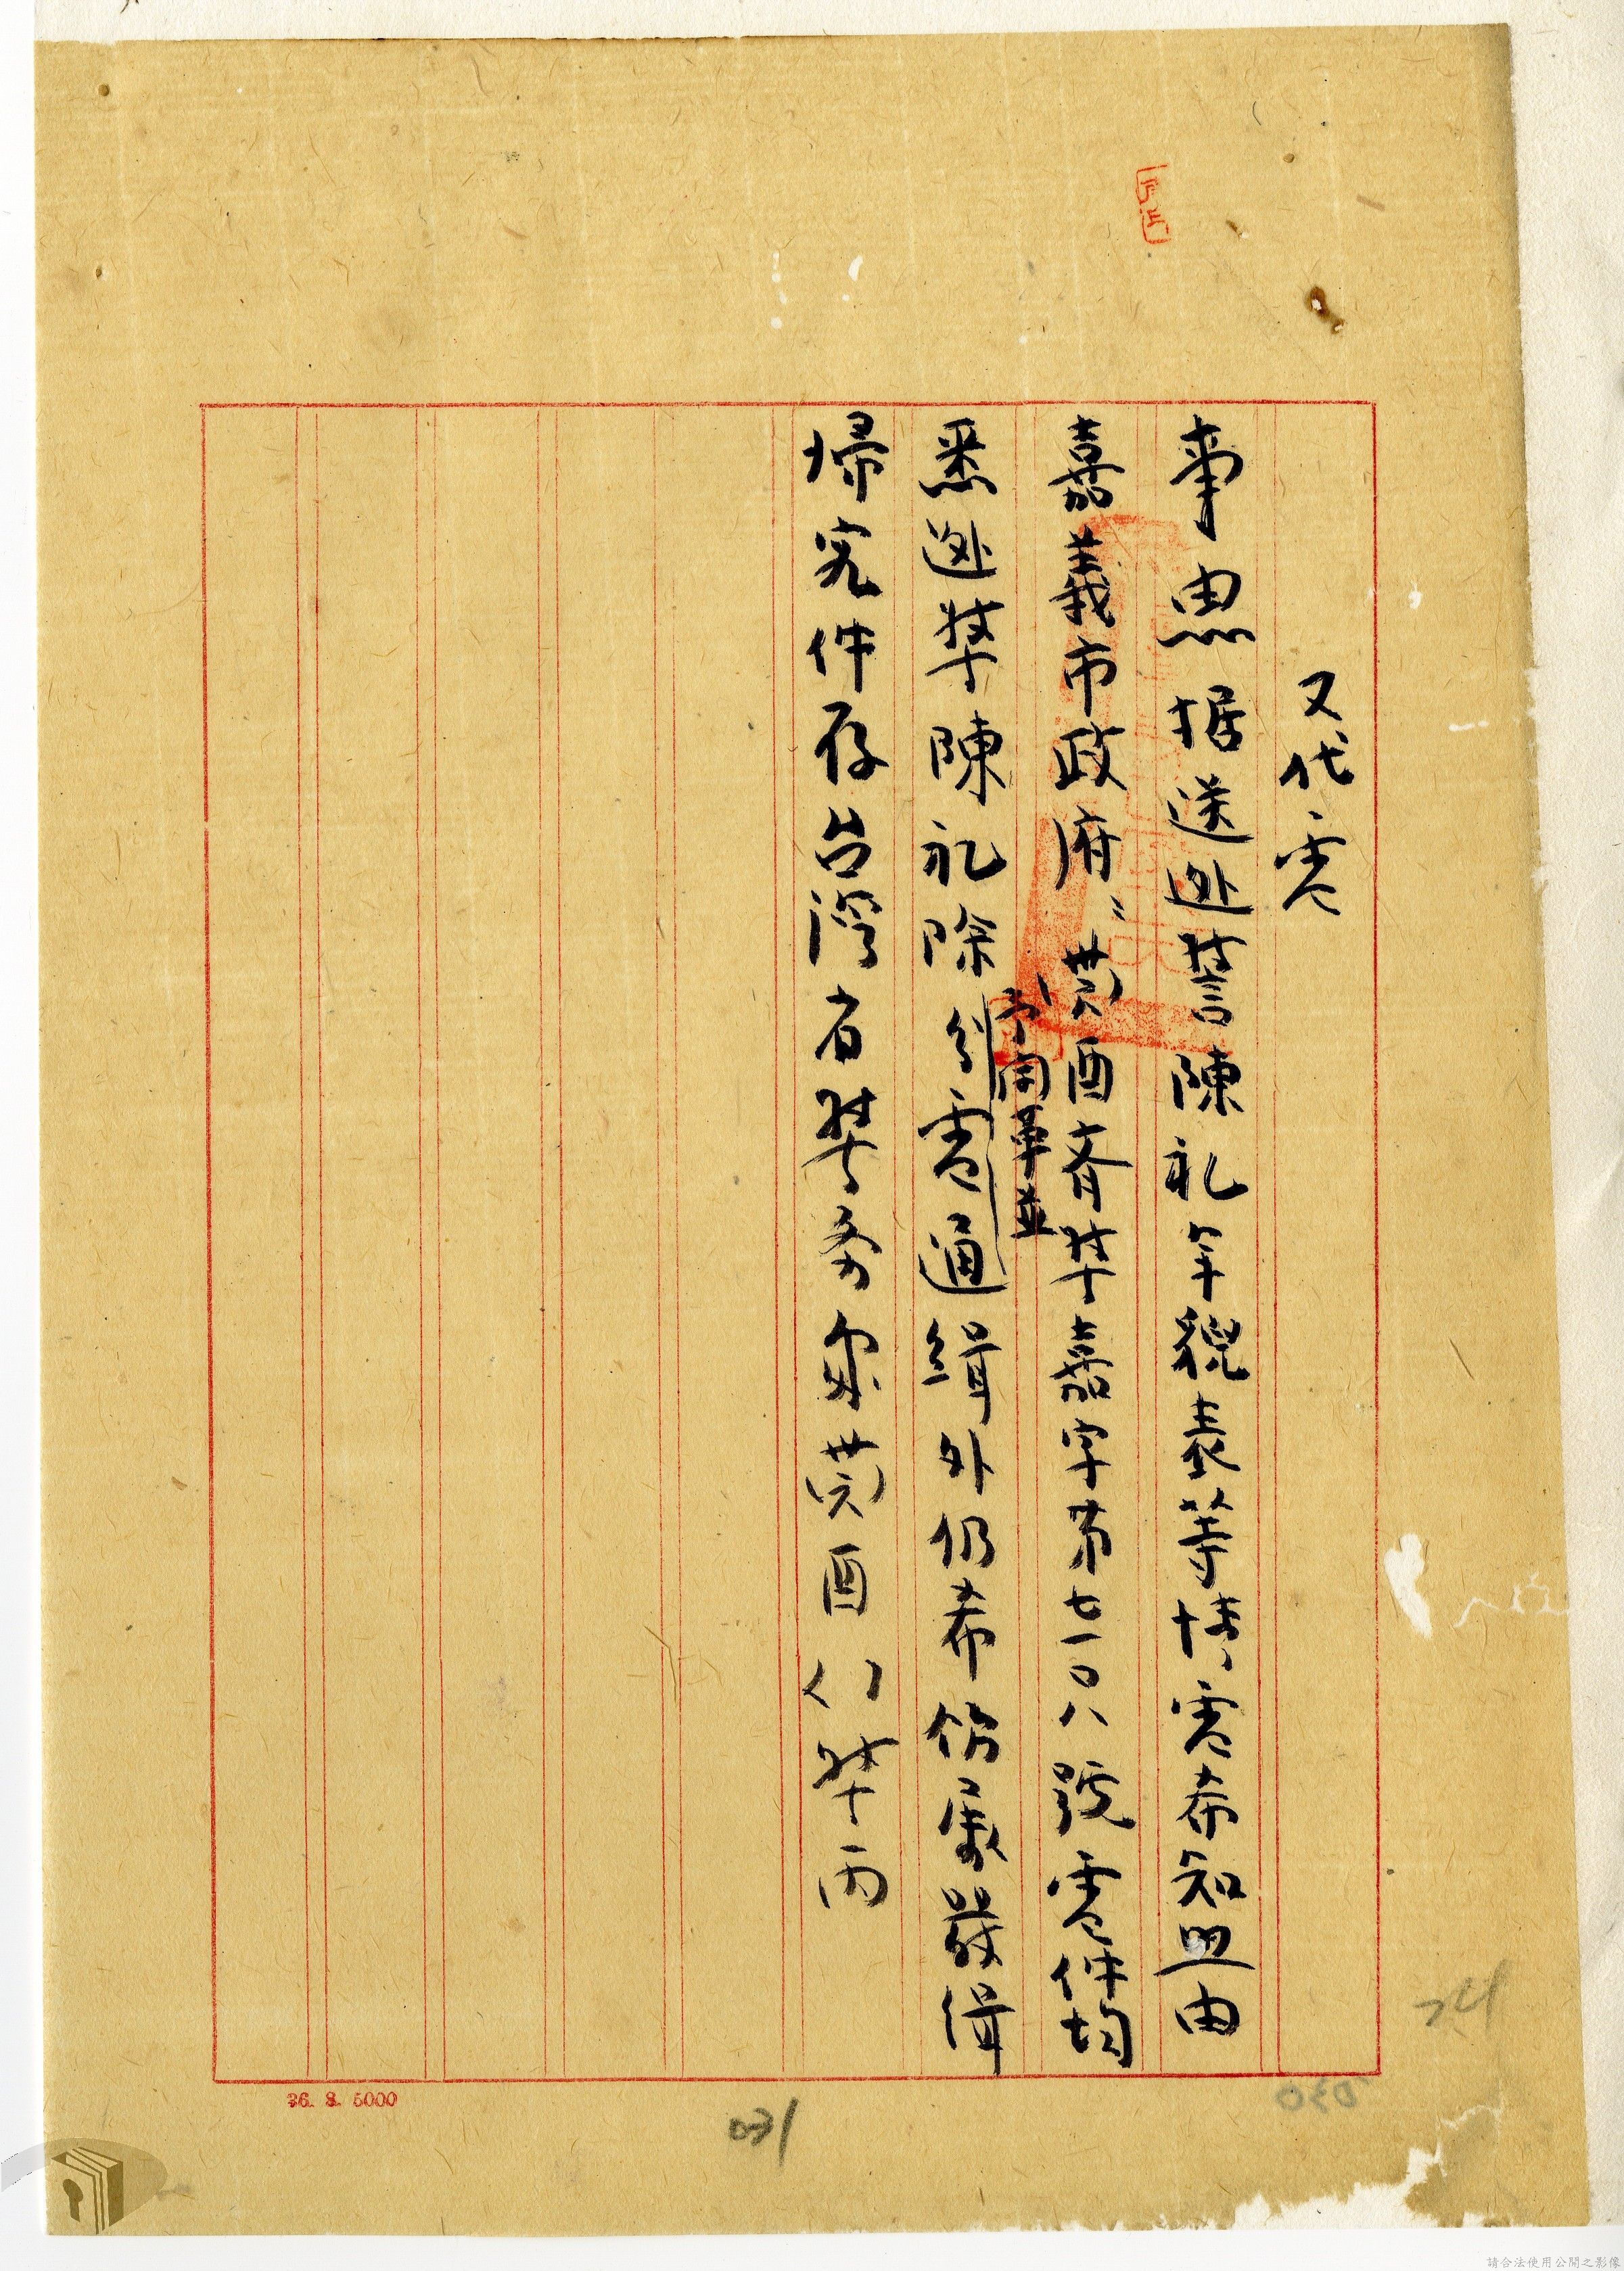 又代電
事由為据送逃警陳礼年貌表等情電希知照由
嘉義市政府：（卅六）酉齊警嘉字第七一〇八號電件均
悉逃警陳礼除
予開革並
通緝外仍希飭屬嚴緝
歸究件存台灣省警務處（卅六）酉 警丙
36. 8. 5000
031
030
請合法使用公開之影像